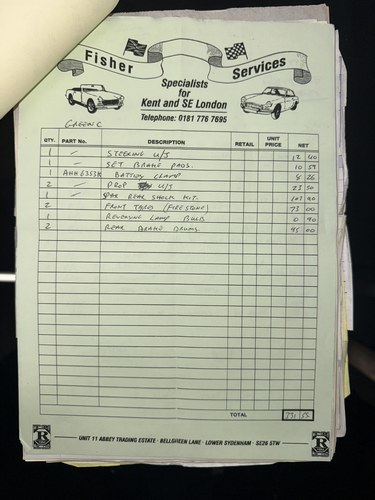 Fisher Services
Specialists
for
Kent and SE London
Telephone: 0181 776 7695
GREEN C
QTY. PART No. DESCRIPTION RETAIL UNIT PRICE NET
1 — STEERING U/J 12
1 — SET BRAKE PADS. 10 59
1 BATTERY CLAMP 8 26
2 — PROP U/J 23 50
1 — REAR SHOCK KIT. 90
2 FRONT TYRES (FIRESTONE) 72 00
1 REVERSING LAMP BULB 0 90
2 REAR BRAKE DRUMS. 95 00
TOTAL
R R
UNIT 11 ABBEY TRADING ESTATE · BELLGREEN LANE · LOWER SYDENHAM · SE26 5TW